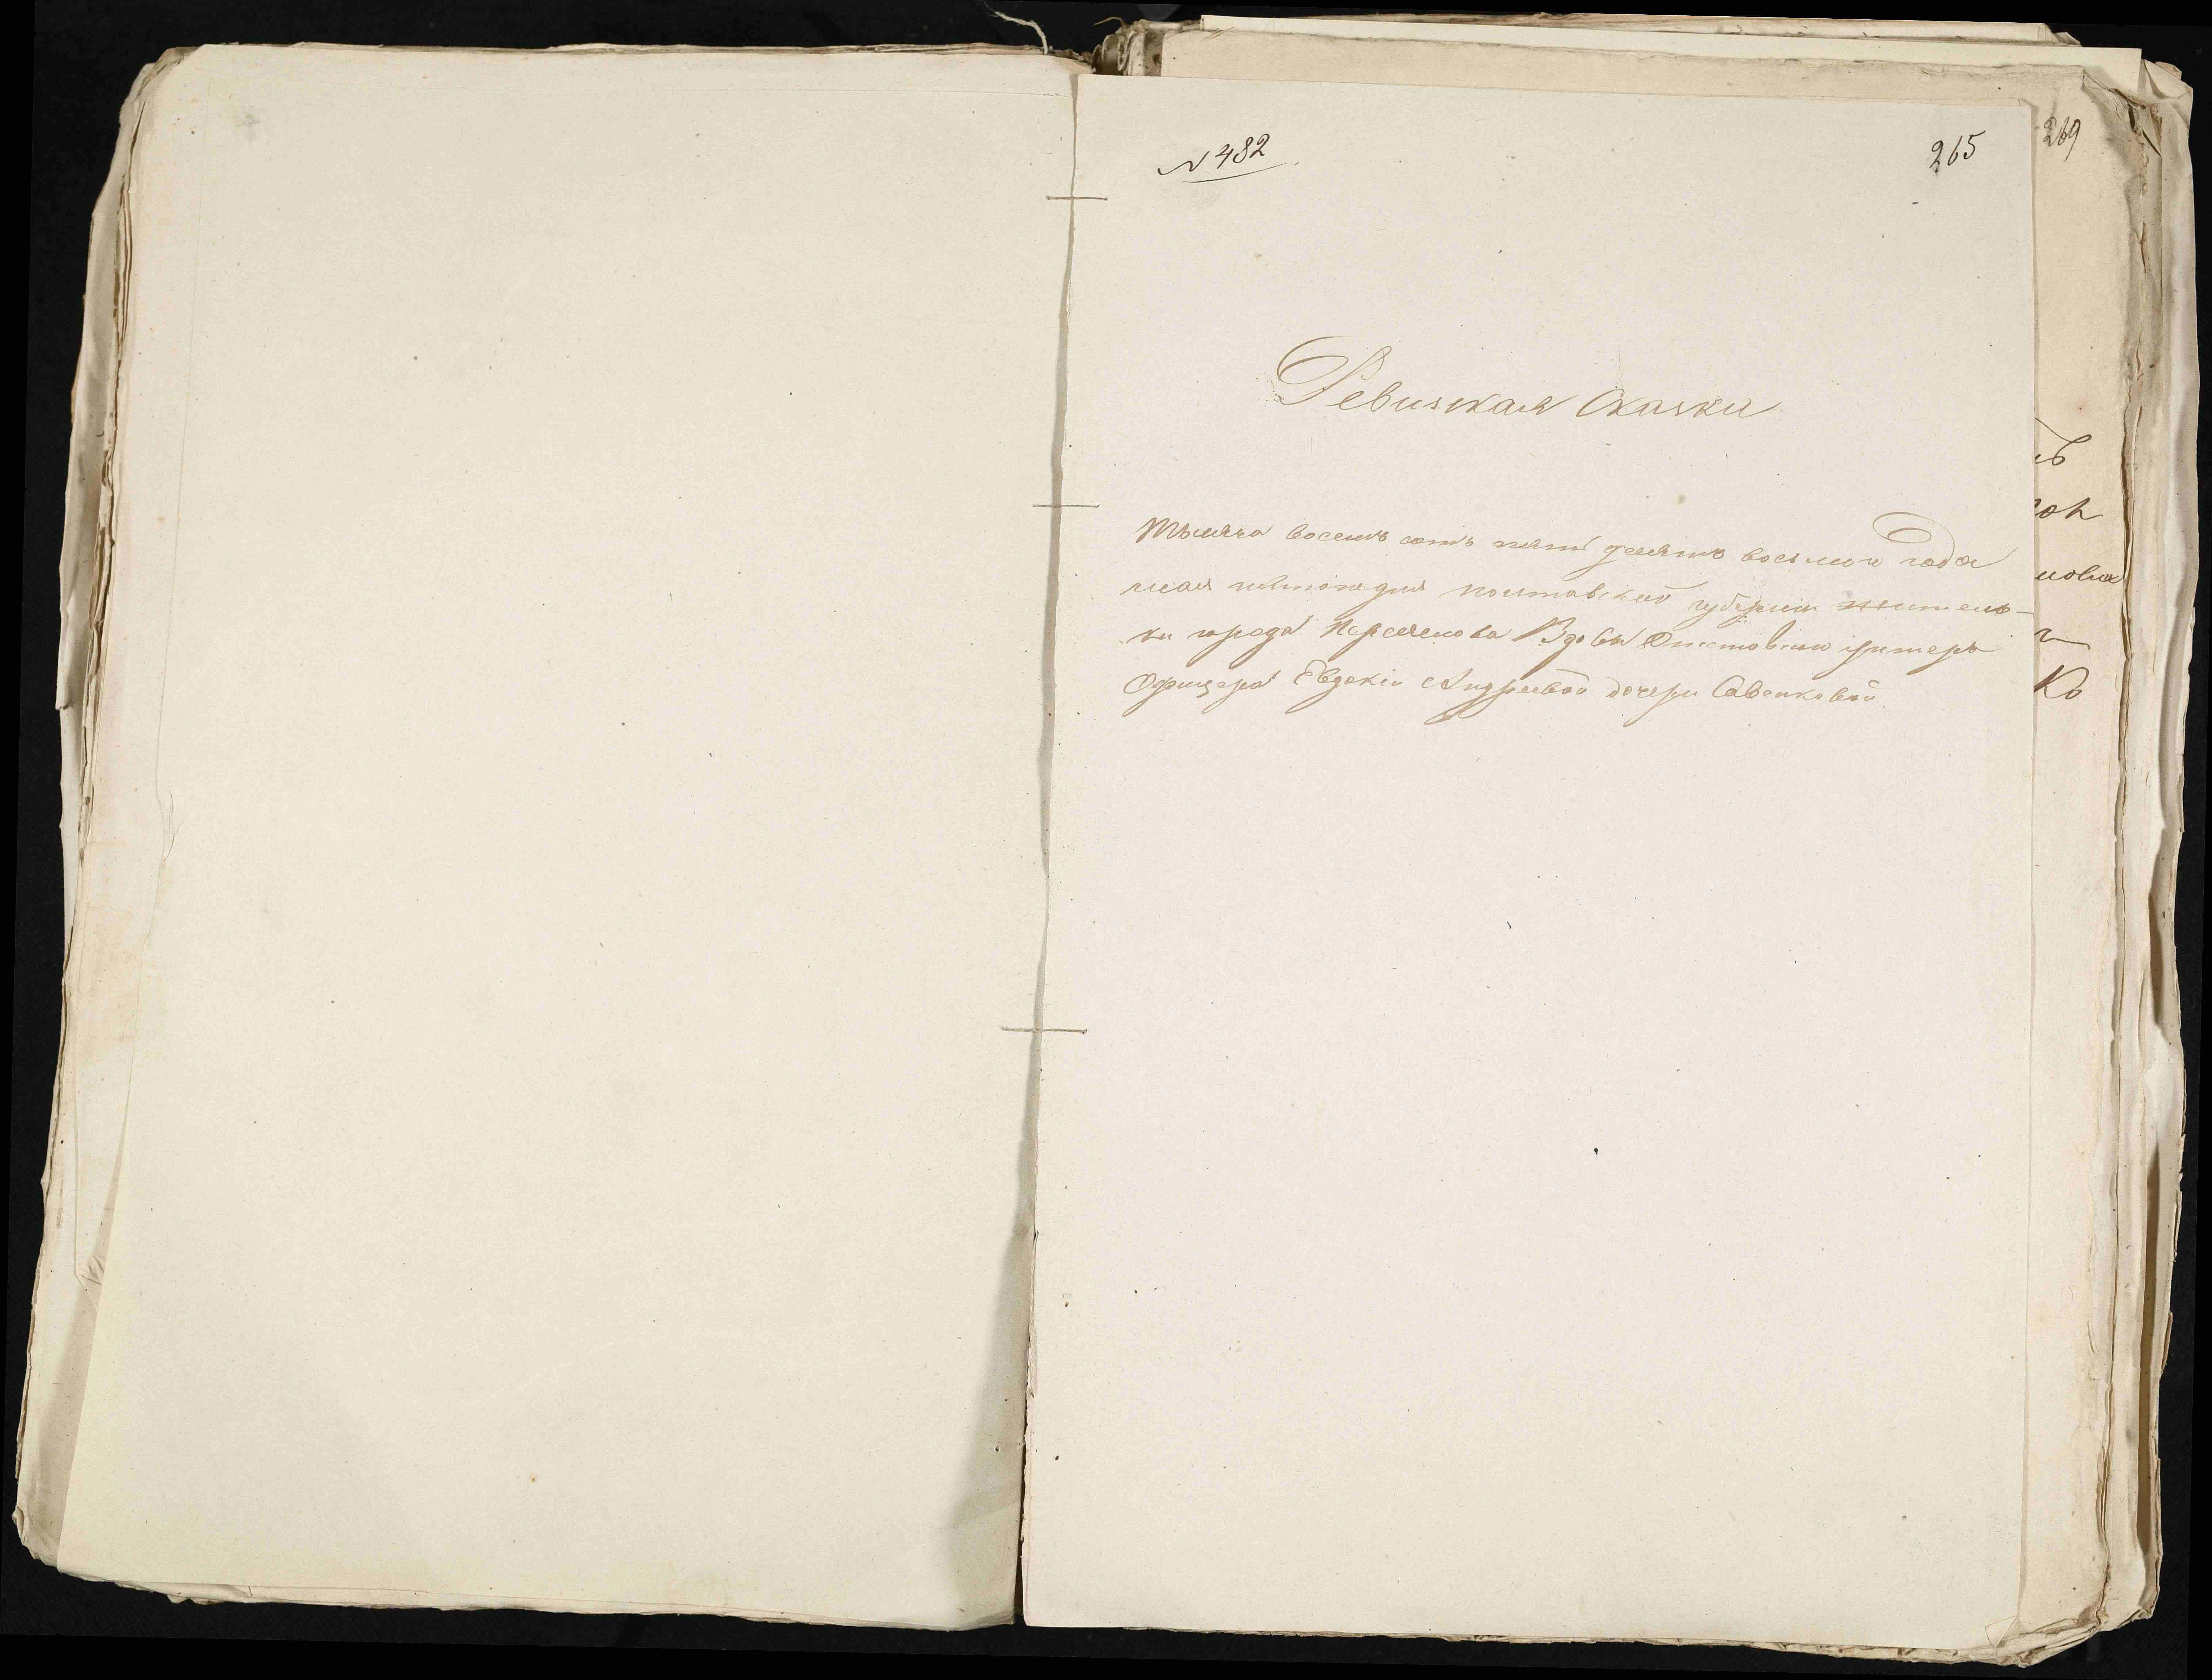 N 482
265
269
Ревизкая сказка
Тысяча восемь сотъ пять десятъ восьмого года
мая полтавской губернии житель-
ки города Переяслова Вдовы унтеръ
Офицера Евдокіи Андреевой дочери Савенковой